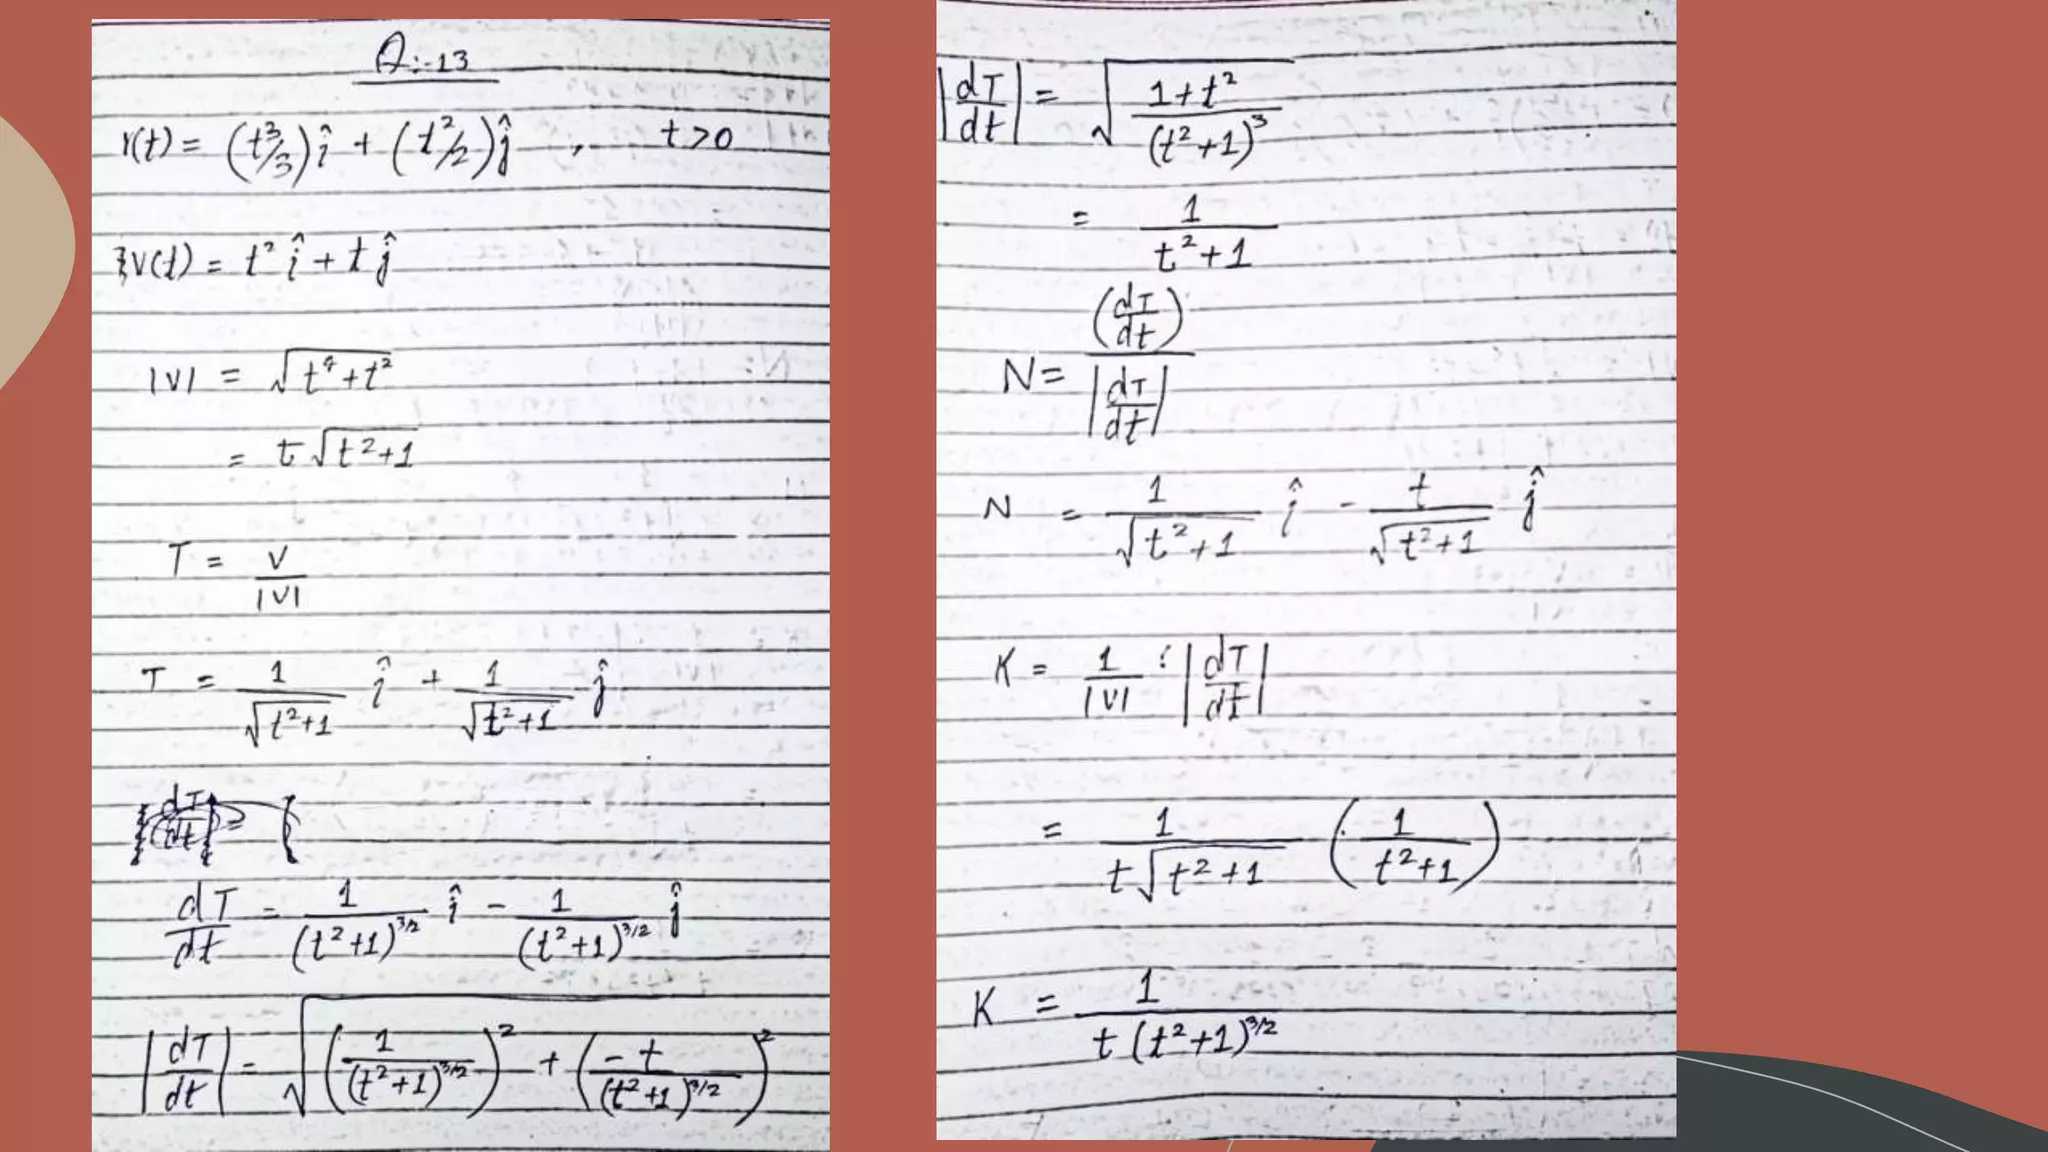 Q:-13
r(t) = (t³/3) î + (t²/2) ĵ , t>0
v(t) = t² î + t ĵ
|v| = √(t⁴+t²)
= t √(t²+1)
T = v/|v|
T = 1/√(t²+1) î + 1/√(t²+1) ĵ
dT/dt = 1/(t²+1)^3/2 î - 1/(t²+1)^3/2 ĵ
|dT/dt| = √((1/(t²+1)^3/2)² + (-t/(t²+1)^3/2)²)
|dT/dt| = √((1+t²)/(t²+1)³)
= 1/(t²+1)
N = (dT/dt)/|dT/dt|
N = 1/√(t²+1) î - t/√(t²+1) ĵ
K = 1/|v| : |dT/dt|
= 1/(t√(t²+1)) (1/(t²+1))
K = 1/(t (t²+1)^3/2)